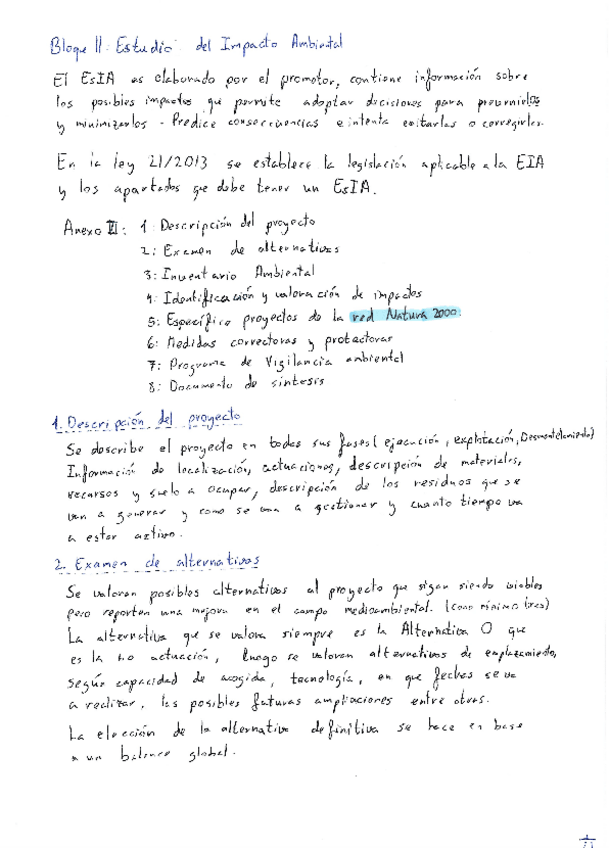 Bloque II: Estudio del Impacto Ambiental
El EsIA es elaborado por el promotor, contiene información sobre
los posibles impactos que permite adoptar decisiones para prevenirlos
y minimizarlos - Predice consecuencias e intenta evitarlas o corregirlas.
En la ley 21/2013 se establece la legislación aplicable a la EIA
y los apartados que debe tener un EsIA.
Anexo VI: 1: Descripción del proyecto
2: Examen de alternativas
3: Inventario Ambiental
4: Identificación y valoración de impactos
5: Específico proyectos de la red Natura 2000.
6: Medidas correctoras y protectoras
7: Programa de Vigilancia ambiental
8: Documento de síntesis
1. Descripción del proyecto
Se describe el proyecto en todas sus fases (ejecución, explotación, Desmantelamiento)
Información de localización, actuaciones, descripción de materiales,
recursos y suelo a ocupar, descripción de los residuos que se
van a generar y como se van a gestionar y cuanto tiempo va
a estar activo.
2. Examen de alternativas
Se valoran posibles alternativas al proyecto que sigan siendo viables
pero reporten una mejora en el campo medioambiental. (como mínimo tres)
La alternativa que se valora siempre es la Alternativa 0 que
es la no actuación, luego se valoran alternativas de emplazamiento,
según capacidad de acogida, tecnología, en que fechas se va
a realizar, las posibles futuras ampliaciones entre otras.
La elección de la alternativa definitiva se hace en base
a un balance global.